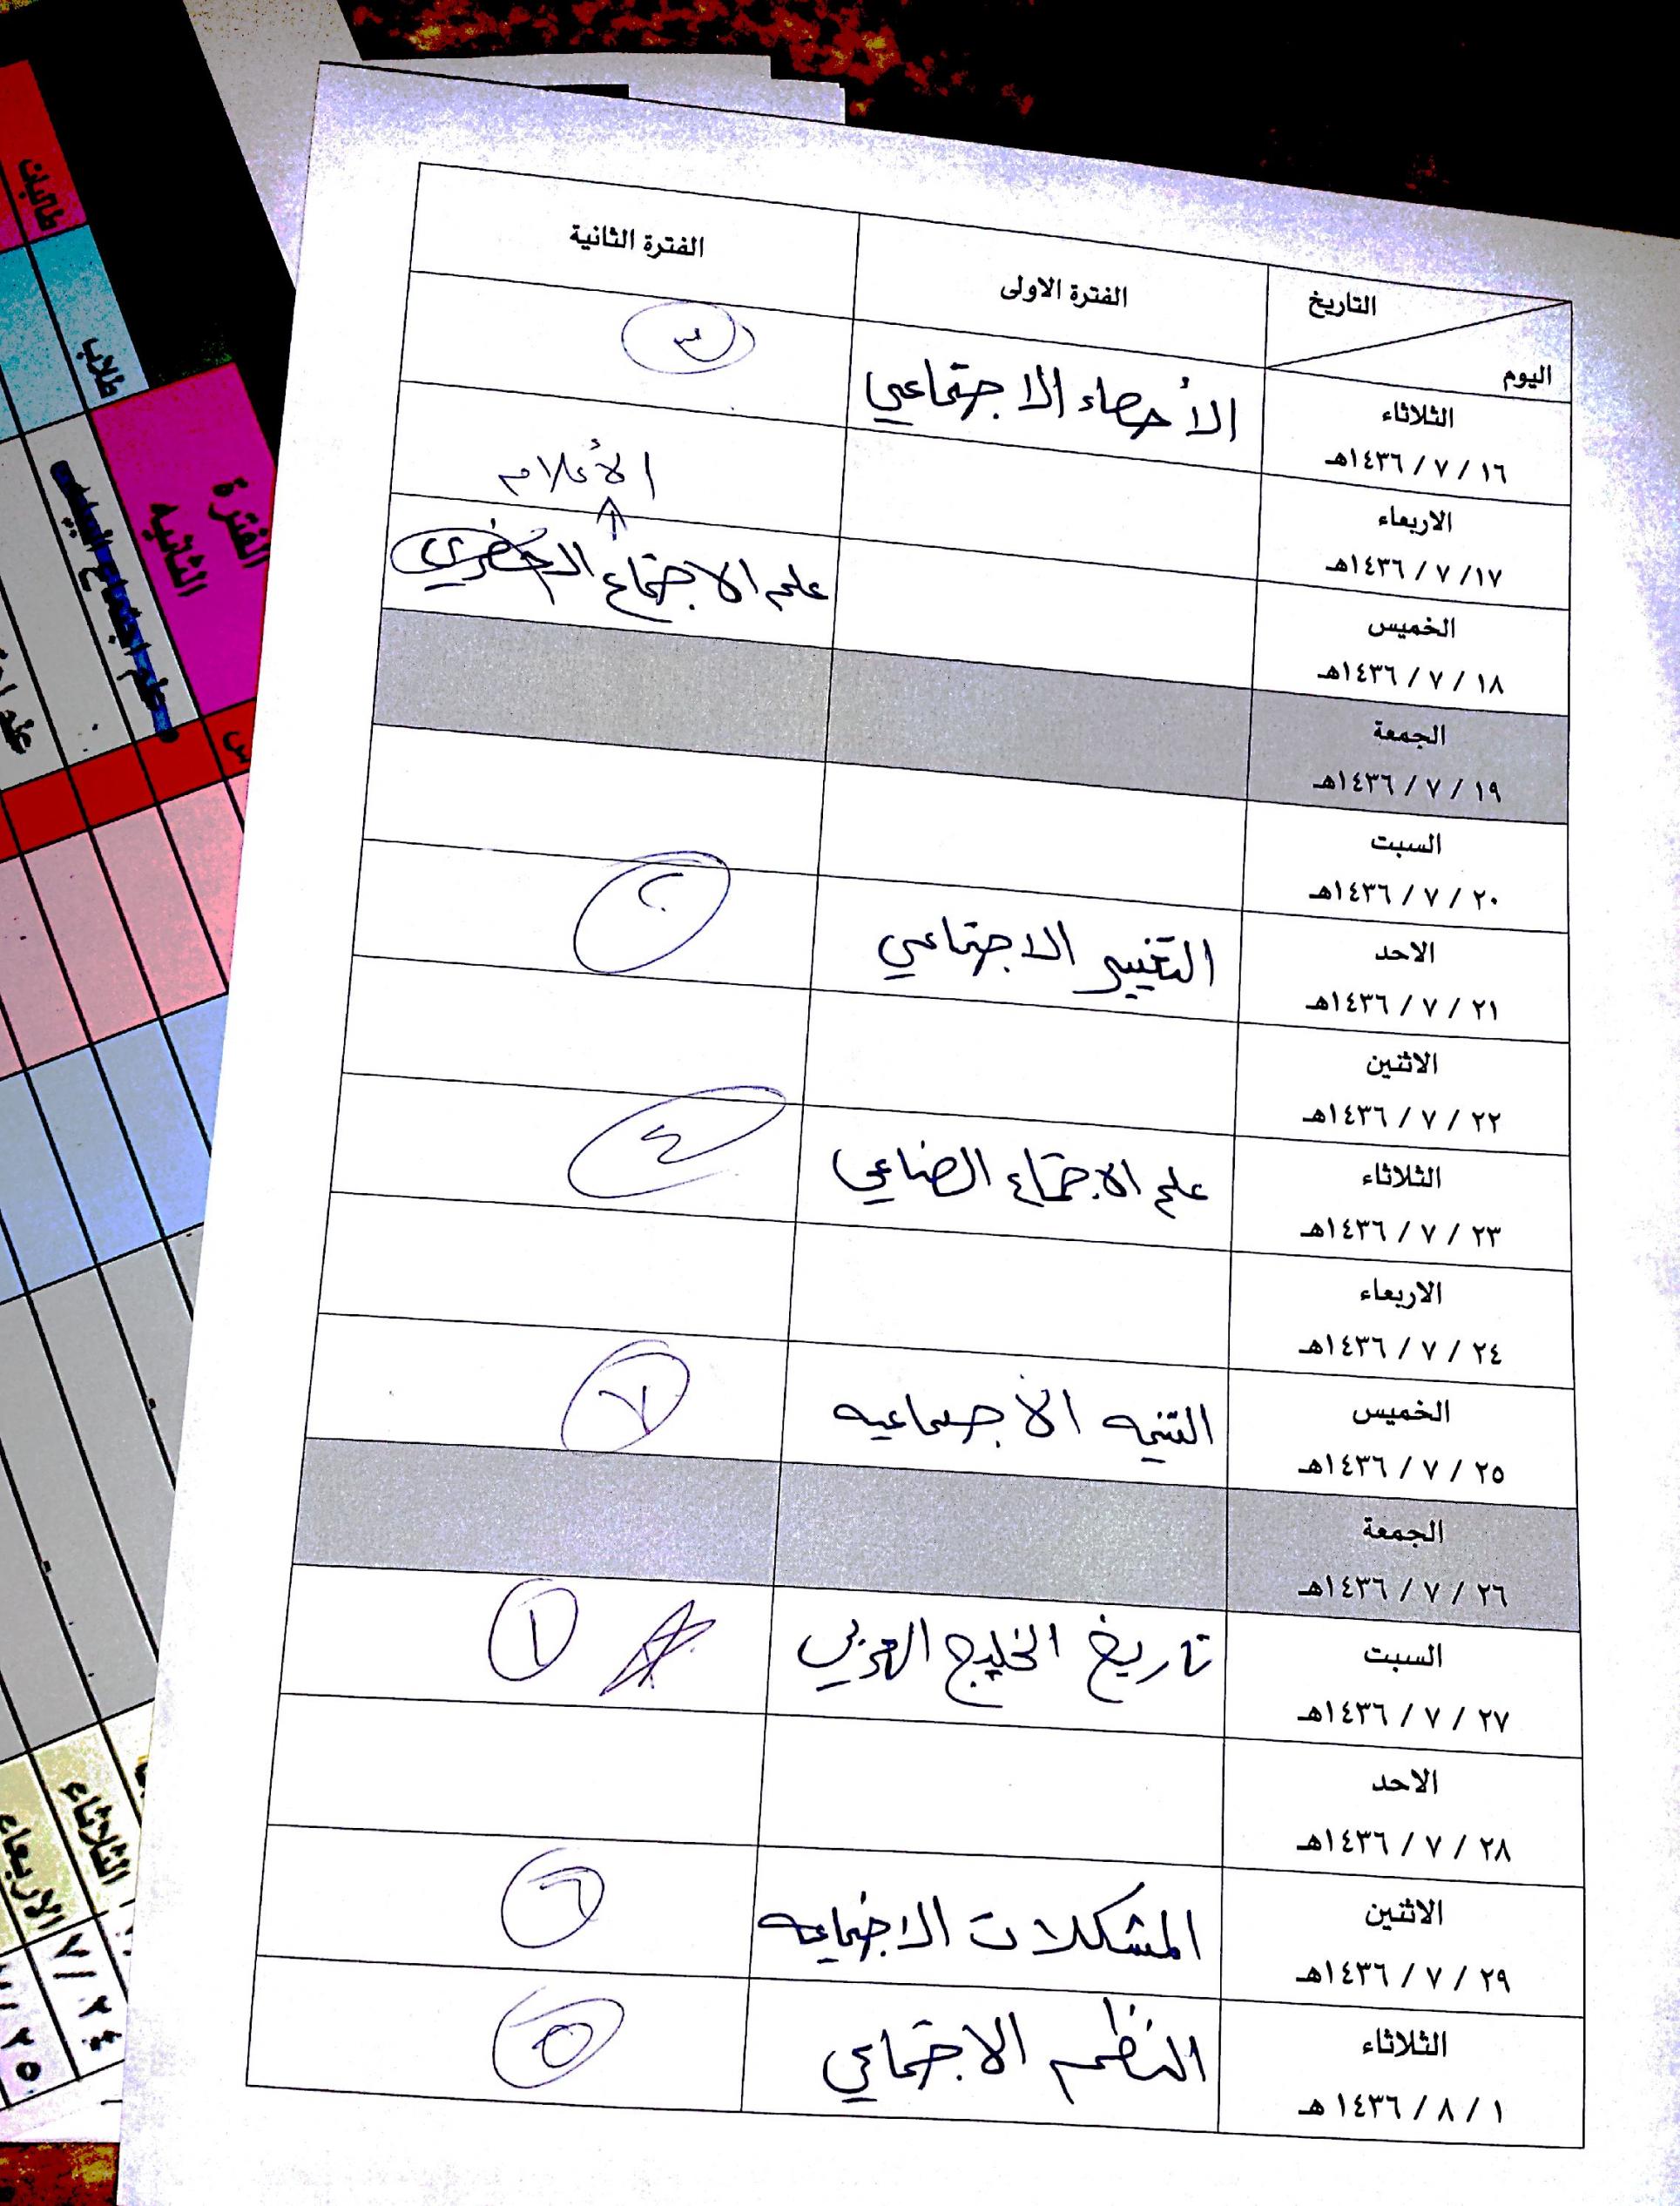 التاريخ
اليوم
الفترة الاولى
الفترة الثانية
الثلاثاء
١٦ / ٧ / ١٤٣٦هـ
الأحصاء الاجتماعي
٣
الاربعاء
١٧/ ٧ / ١٤٣٦هـ
الأعلام
الخميس
١٨ / ٧ / ١٤٣٦هـ
علم الاجتماع الحضري
الجمعة
١٩ / ٧ / ١٤٣٦هـ
السبت
٢٠ / ٧ / ١٤٣٦هـ
الاحد
٢١ / ٧ / ١٤٣٦هـ
التغيير الاجتماعي
الاثنين
٢٢ / ٧ / ١٤٣٦هـ
الثلاثاء
٢٣ / ٧ / ١٤٣٦هـ
علم الاجتماع الصناعي
٤
الاربعاء
٢٤ / ٧ / ١٤٣٦هـ
الخميس
٢٥ / ٧ / ١٤٣٦هـ
التنميه الأجتماعيه
٧
الجمعة
٢٦ / ٧ / ١٤٣٦هـ
السبت
٢٧ / ٧ / ١٤٣٦هـ
تاريخ الخليج العربي
١
الاحد
٢٨ / ٧ / ١٤٣٦هـ
الاثنين
٢٩ / ٧ / ١٤٣٦هـ
المشكلات الاجتماعيه
٦
الثلاثاء
١ / ٨ / ١٤٣٦ هـ
النظم الاجتماعي
٥
طالبات
طلاب
الفترة
الثانيه
علم اجتماع
الثلاثاء
الاربعاء
٧/ ٢٤